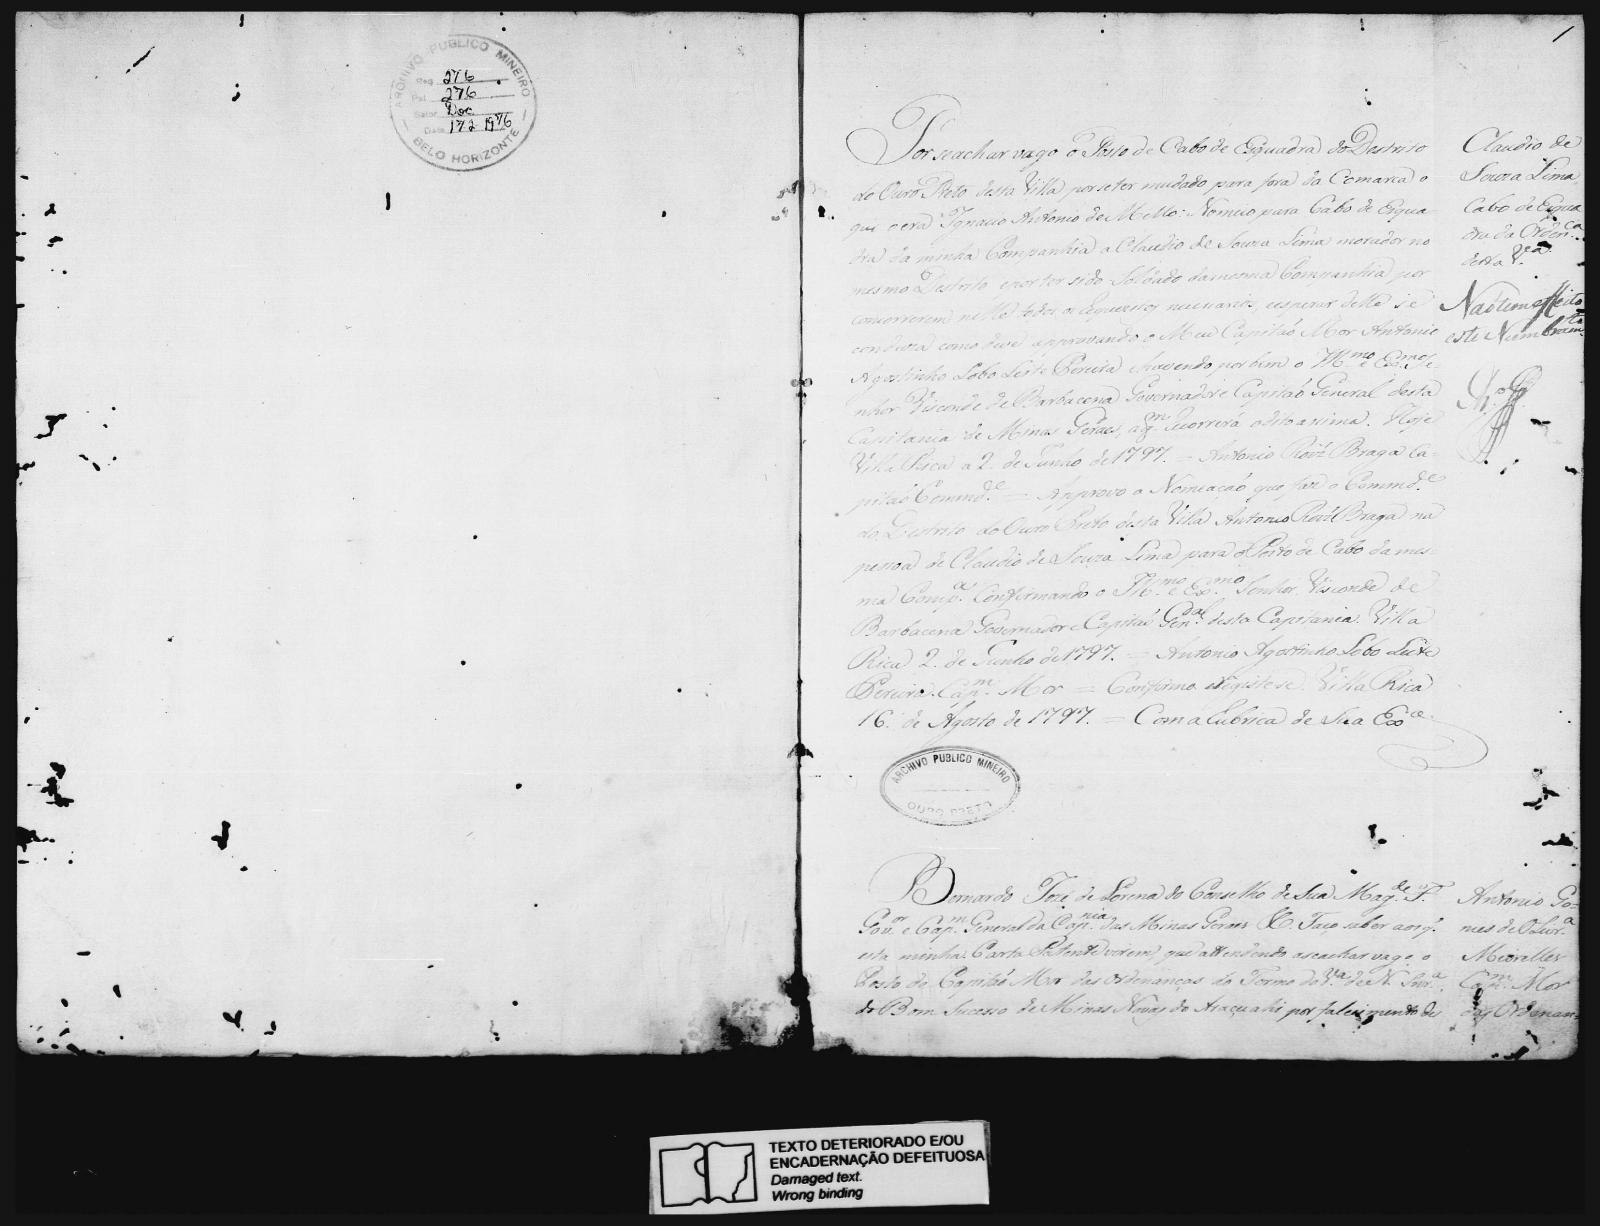 ARCHIVO PUBLICO MINEIRO
Reg. 276
Pal. 276
Setor Doc
Data 17 2 1976
BELO HORIZONTE
1
Por se achar vago o Posto de Cabo de Esquadra do Destrito
do Ouro Preto desta Villa por se ter mudado para fora da Comarca o
que o era Ignacio Antonio de Mello: Nomeio para Cabo de Esqua
dra da minha Companhia a Claudio de Souza Lima morador no
mesmo Destrito e por ter sido Soldado da mesma Companhia por
concorrerem nelle todos os requezitos necessarios, e esperar delle se
conduza como deve approvando o Meu Capitaõ Mor Antonio
Agostinho Lobo Leite Pereira e havendo por bem o Illmo e Exmo Se
nhor Visconde de Barbacena Governador e Capitaõ General desta
Capitania de Minas Geraes, a qm Recorrerá o dito assima. Hoje
Villa Rica a 2 de Junho de 1797. = Antonio Roiz Braga Ca-
pitaõ Commde = Approvo a Nomeaçaõ que faz o Commde
do Destrito do Ouro Preto desta Villa Antonio Roiz Braga na
pessoa de Claudio de Souza Lima para o Posto de Cabo da mes
ma Compa Confirmando o Illmo e Exmo Senhor Visconde de
Barbacena Governador e Capitaõ Genal desta Capitania. Villa
Rica 2 de Junho de 1797. = Antonio Agostinho Lobo Leite
Pereira. Capm Mor = Confirmo. e Registe-se. Villa Rica
16 de Agosto de 1797. = Com a Rubrica de Sua Exca
Claudio de
Souza Lima
Cabo de Esqua
dra da Ordenca
desta Va
Naõ teve effeito
este Nombramto
ARCHIVO PUBLICO MINEIRO
OURO PRETO
Bernardo Jozé de Lorena do Conselho de Sua Magde F.
Govor e Capm General da Capnia das Minas Geraes &. Faço saber aos q'
esta minha Carta Patente virem, que attendendo a se achar vago o
Posto de Capitaõ Mor das Ordenanças do Termo da Va de N. Snra
do Bom Sucesso de Minas Novas do Arasuahi por falecimento de
Antonio Go=
mes de Olivra
Meirelles
Capm Mor
das Ordenan=
TEXTO DETERIORADO E/OU
ENCADERNAÇÃO DEFEITUOSA
Damaged text.
Wrong binding